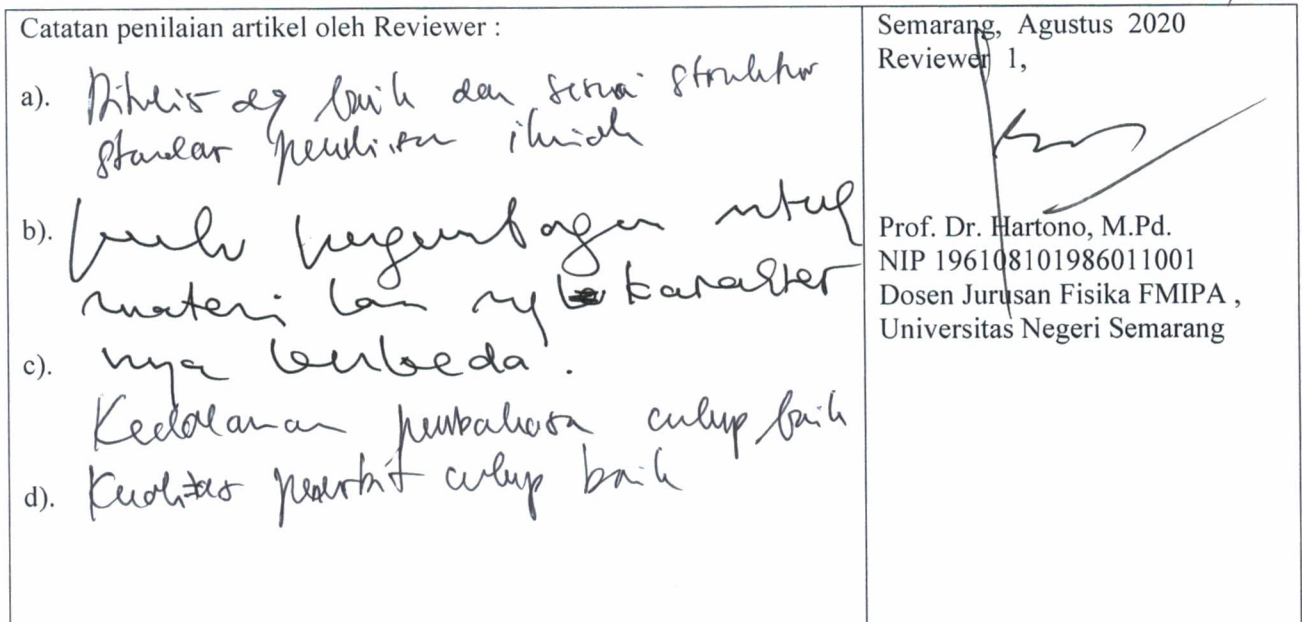 Catatan penilaian artikel oleh Reviewer :
a). Ditulis dg baik dan sesuai struktur
standar penulisan ilmiah
b). perlu pengembangan untuk
materi lain yg karakter
c). nya berbeda.
Kedalaman pembahasan cukup baik
d). Kualitas penerbit cukup baik
Semarang, Agustus 2020
Reviewer 1,
Prof. Dr. Hartono, M.Pd.
NIP 196108101986011001
Dosen Jurusan Fisika FMIPA ,
Universitas Negeri Semarang